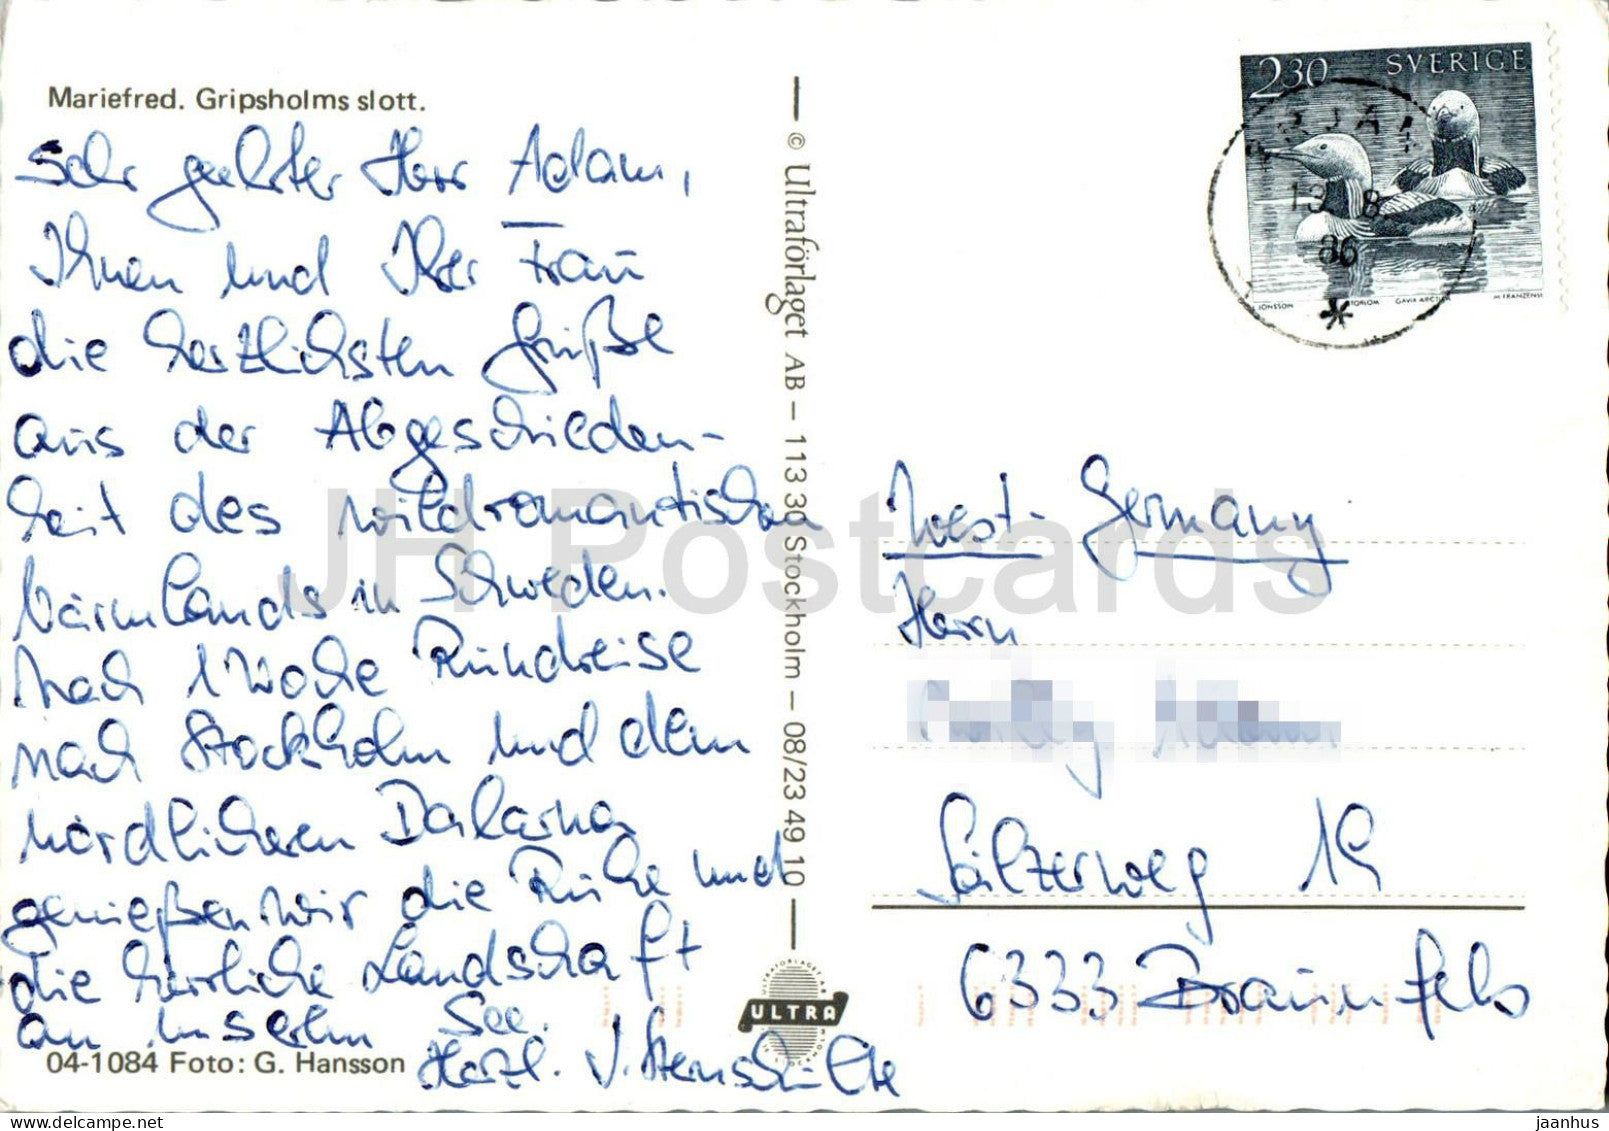 Mariefred. Gripsholms slott.
Sehr geehrter Herr Adam,
Ihnen und Ihrer Frau
die herzlichsten Grüße
aus der Abgeschieden-
heit des wildromantischen
Värmlands in Schweden.
Nach 1 Woche Rundreise
nach Stockholm und dem
nördlicheren Dalarna
genießen wir die Ruhe und
die herrliche Landschaft
an unserem See.
Herzl.
04-1084 Foto: G. Hansson
© Ultraförlaget AB – 113 30 Stockholm – 08/23 49 10
ULTRA
2.30 SVERIGE
19 8
86
JÖNSSON STORLOM GAVIA ARCTICA M. FRANZÉN SC
West-Germany
Herrn
Solzerweg 19
6333 Braunfels
JH Postcards
jaanhus
www.delcampe.net